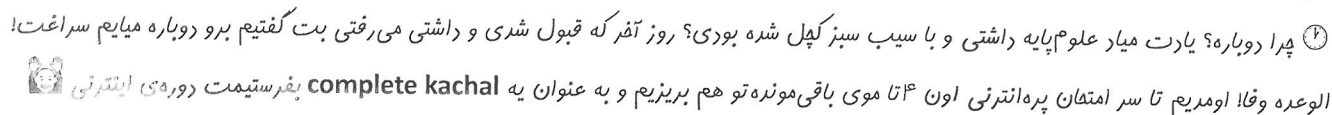 چرا دوباره؟ یادت میاد علوم‌پایه داشتی و با سیب سبز کچل شده بودی؟ روز آخر که قبول شدی و داشتی می‌رفتی بت گفتیم برو دوباره میایم سراغت!
الوعده وفا! اومدیم تا سر امتحان پره‌انترنی اون ۴ تا موی باقی‌مونده‌تو هم بریزیم و به عنوان یه complete kachal بفرستیمت دوره‌ی اینترنی